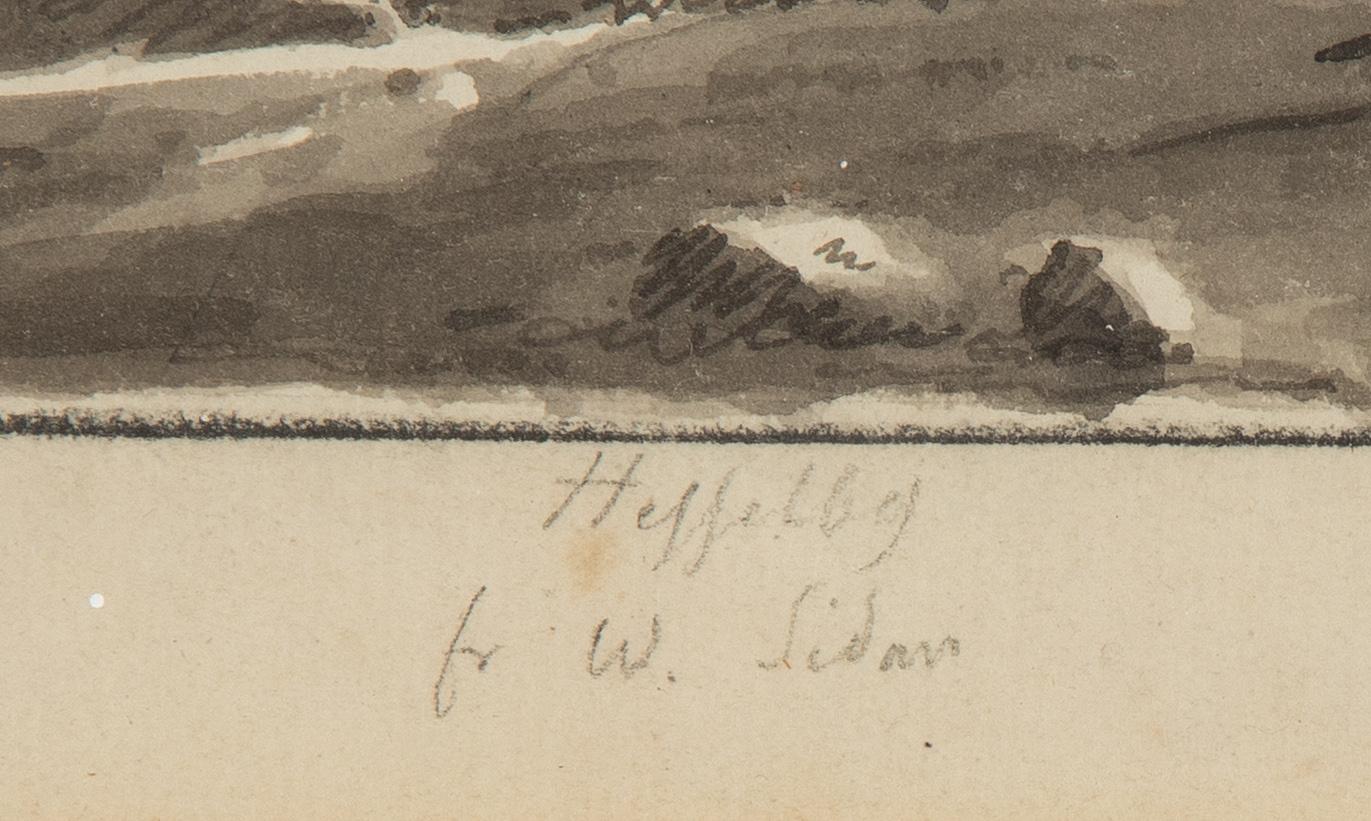 Hesselby
fr W. Sidan